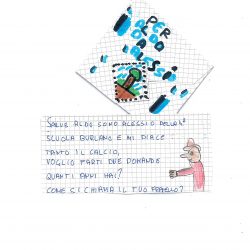 PER
ALDO
DA
ALESSIO
SALVE ALDO SONO ALESSIO DELLA 4ª
SCUOLA BURLANO E MI PIACE
TANTO IL CALCIO,
VOGLIO FARTI DUE DOMANDE
QUANTI ANNI HAI?
COME SI CHIAMA IL TUO FRATELLO?